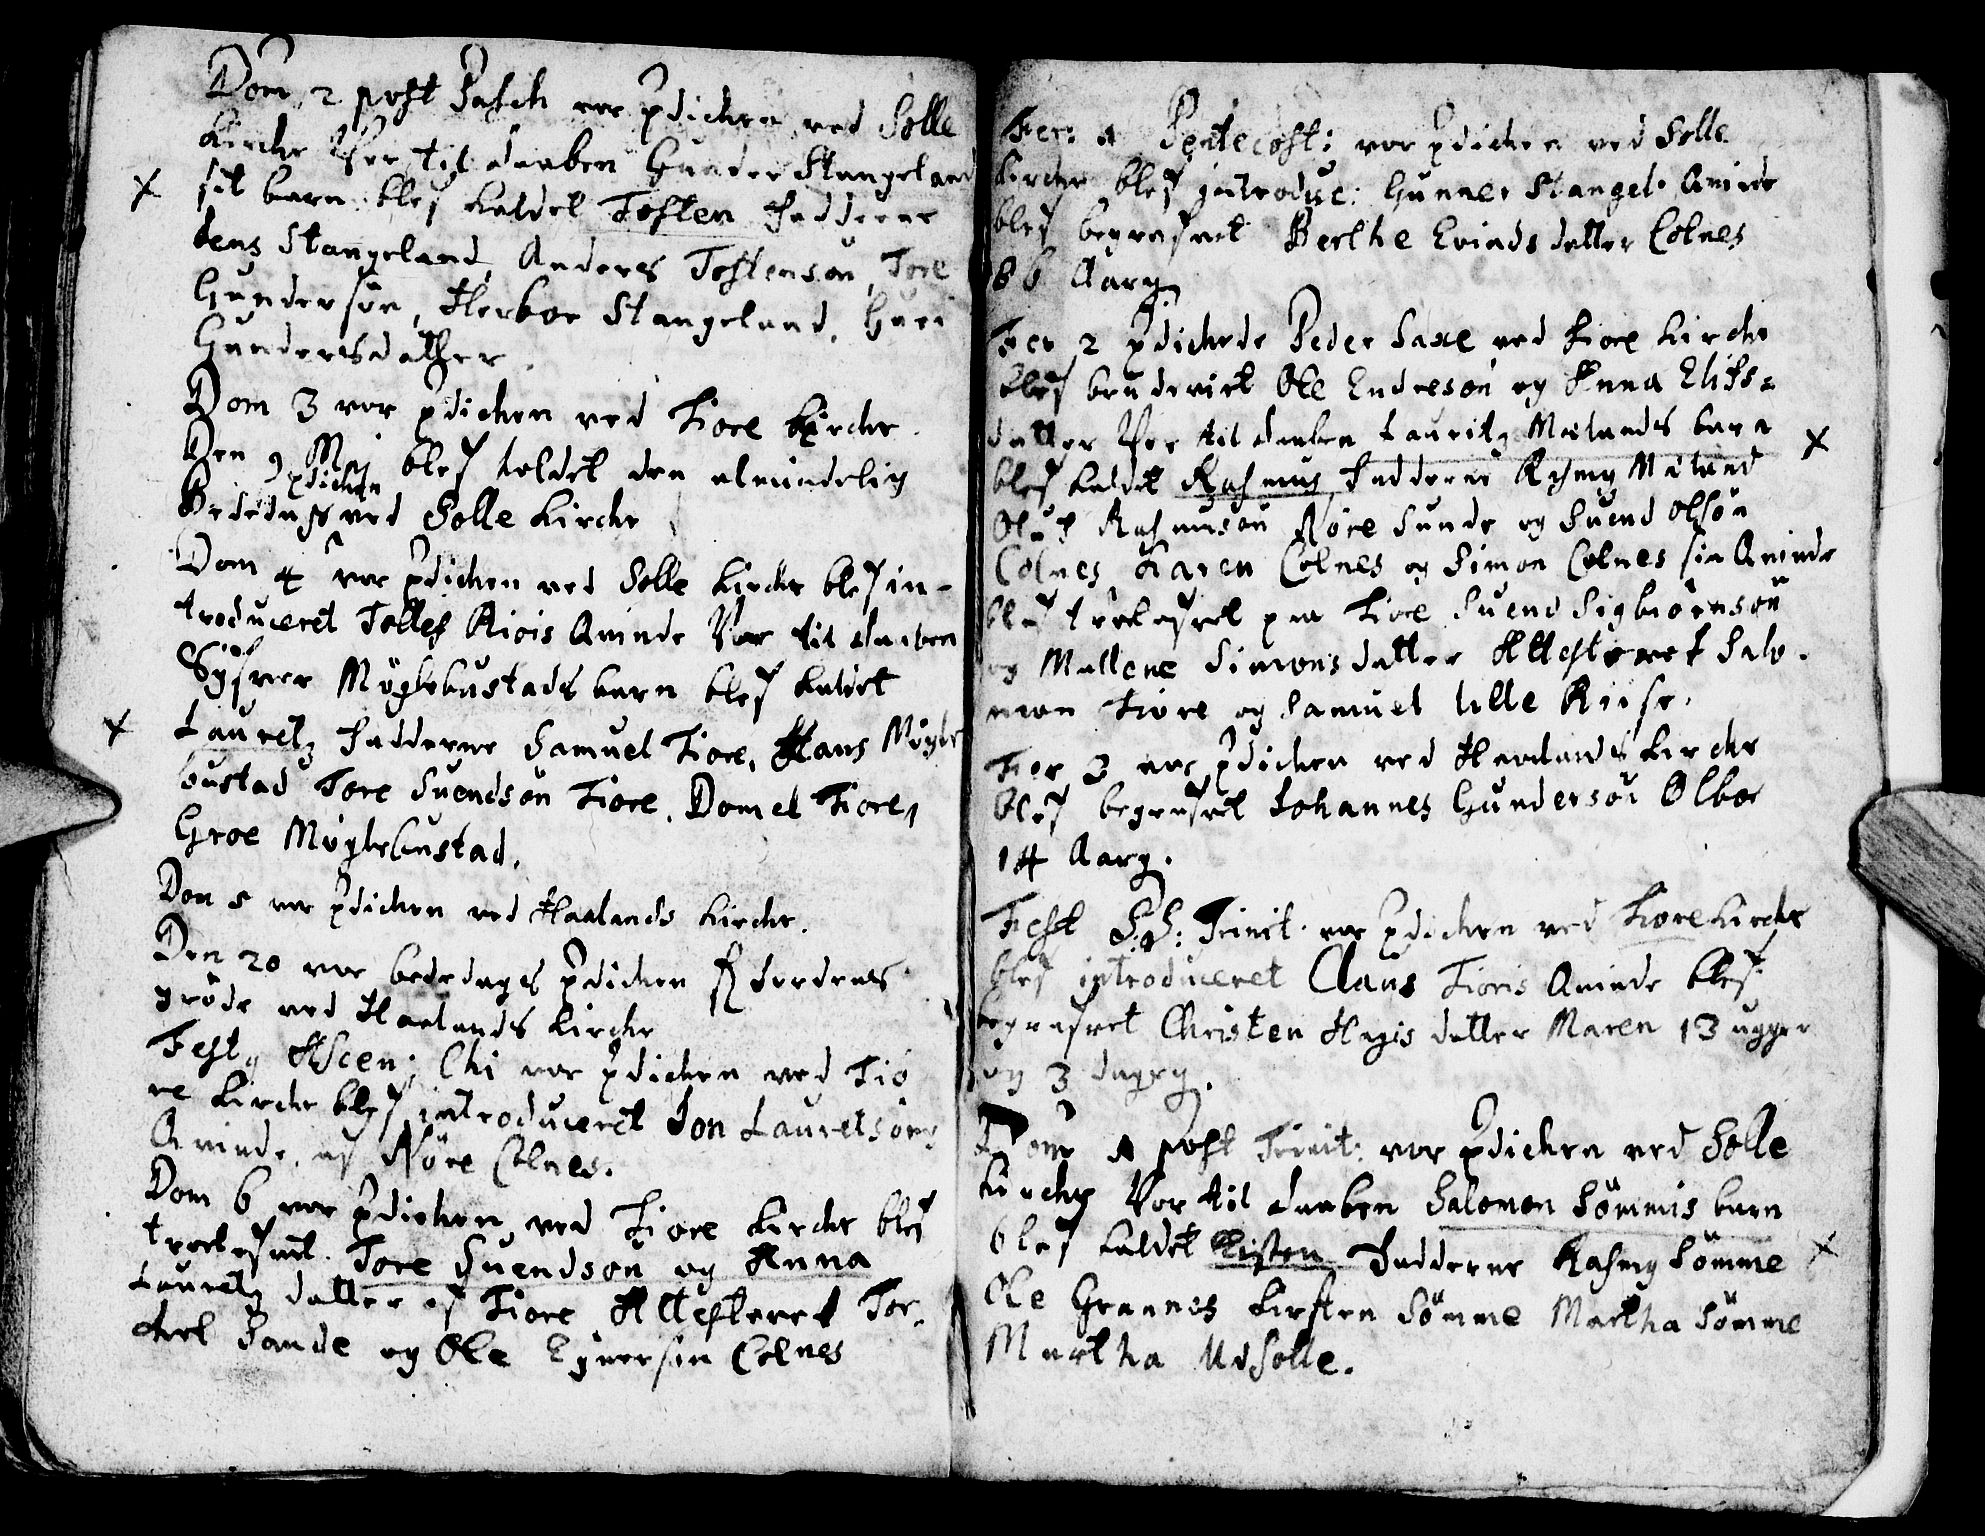 Dom, 2 post Pasch vor pdichen ved Solle
Kirche Var til daaben Gunder Stangeland
sit barn blef kaldet Tosten Fadderne
Jens Stangeland, Anders Tostenson, Tore
Gunderson, Herboe Stangeland, Guri
Gundersdather.
Dom 3 vor pdichen ved Tiore Kirche.
Den 9 Maj blef holdet den almindelig
pdichen
Bededags ved Solle Kirche
Dom 4 vor pdichen ved Solle Kirche blef in-
troduceret Tollef Riois Qvinde Var til daaben
Siysver Møglebustads barn blef kaldet
Lauretz Fadderne Samuel Tiore, Hans Møgle
bustad Tore Suendsøn Tiore, Domel Tiore,
Groe Møglebustad.
Dom 5 vor pdichen ved Haalands Kirche.
Den 20 vor bededags pdichen Jordens
grøde ved Haalands Kirche
Fest Ascen: Chi vor pdichen ved Tio
re Kirche blef introduceret Jon Lauretsøns
Qvinde, af Nøre Colnes.
Dom 6 vor pdichen ved Tiore Kirche blef
trolofvet. Tore Suendsøn og Anna
Lauretz datter af Tiore Attesteret Tor-
kel Sande og Ole Eynerson Colnes
Fer: 1 Pentecost: vor pdichen ved Solle
Kirche blef introduc: Gunner Stangel. Qvinde
blef begrafvet Berthe Evindsdatter Colnes
86 Aarg
Fer 2 pdichede Peder Saxe ved Tiore Kirche
blef brudeviet Ole Endresøn og Anna Elifs=
datter Var til daaben Lauritz Mælands barn
blef kaldet Rasmus, Fadderne Rasmg Mæland
Oluf Rasmusøn Nøre Sunde og Suend Olsøn
Colnes, Karen Colnes og Simon Colnes sin Qvinde
blef trolofvet paa Tiore Suend Sigbiørnsøn
og Mallene Simonsdatter Attesteret Salo-
mon Tiore og Samuel lille Riise.
Fer 3 vor pdichen ved Haalands Kirche
blef begrafvet Johannes Gundersøn Ølboe
14 Aarg.
Fest S.S: Trinit. vor pdichen ved Tiore Kirche
blef introduceret Claus Tioris Qvinde blef
begrafvet Christen Hagis datter Maren 13 ugger
og 3 dageg.
Dom 1 post Trinit: vor pdichen ved Solle
Kirche Var til daaben Salomon Sømmis barn
blef kaldet Kisten Fadderne Rasmg Sømme
Ole Grannes Kirsten Sømme Martha Sømme
Martha UdSolle.